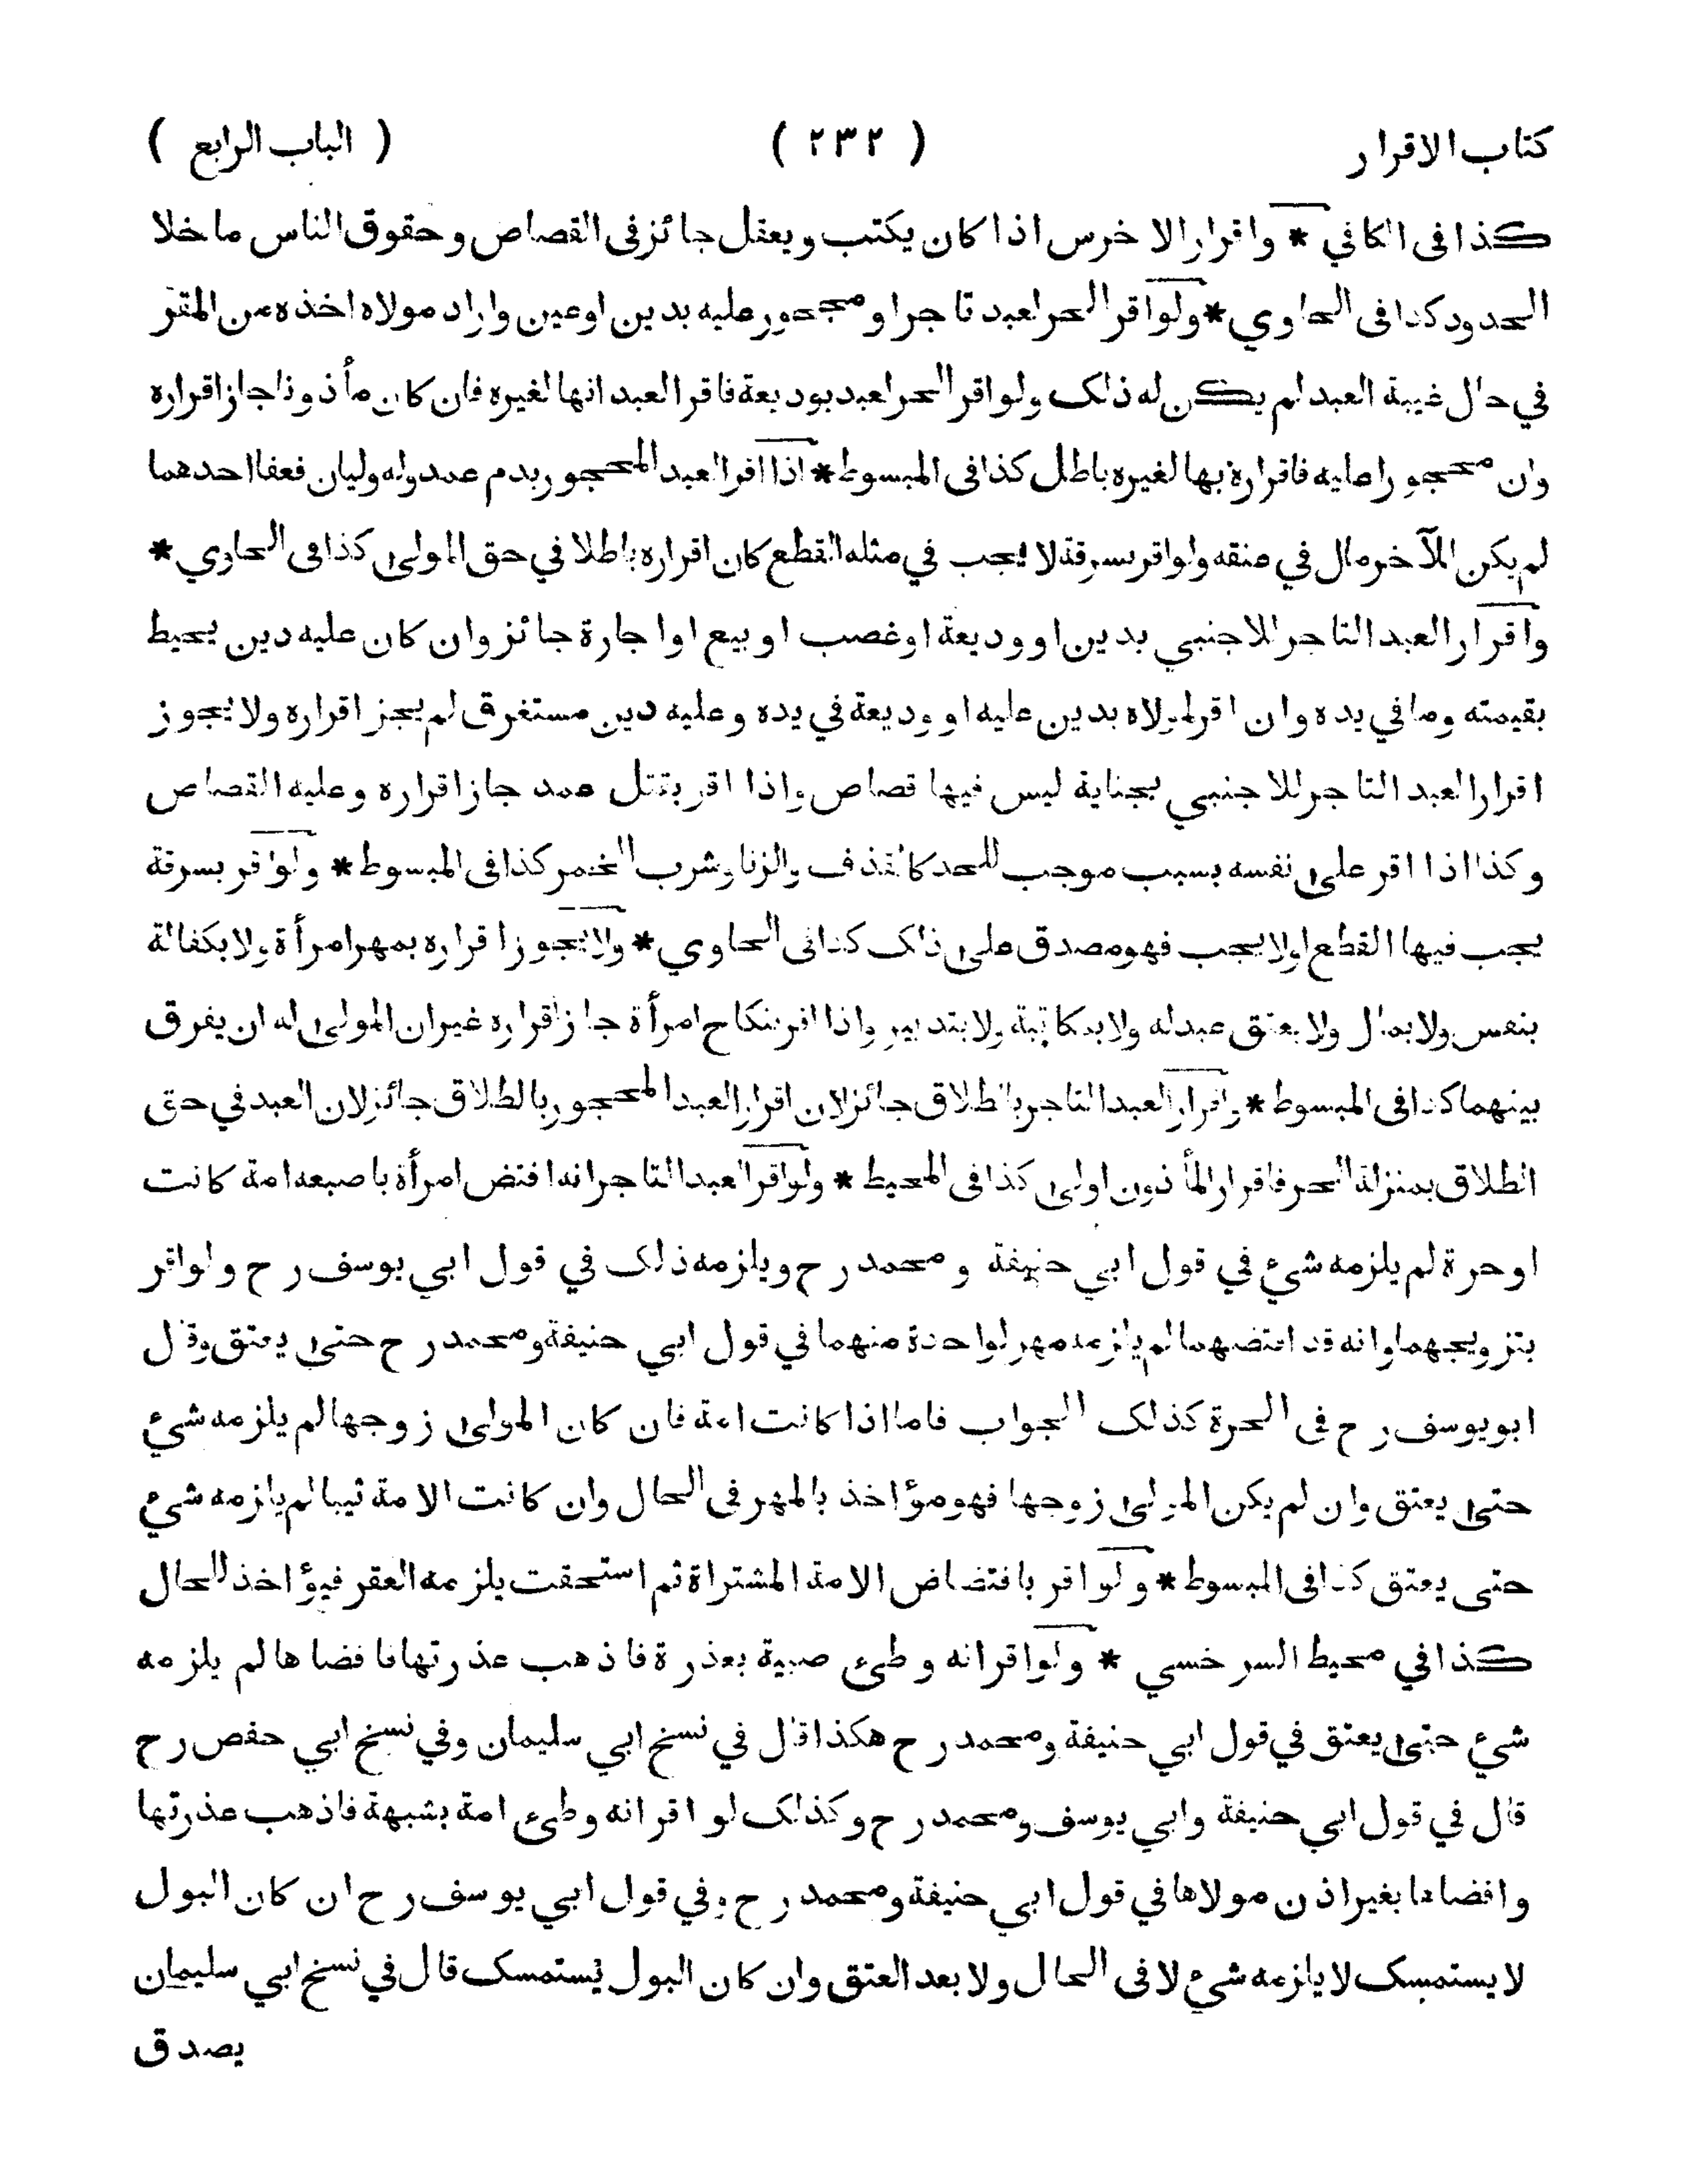 كتاب الاقرار ( ٢٣٢ ) ( الباب الرابع )
كذا فى الكافي * واقرار الاخرس اذا كان يكتب ويعقل جائز فى القصاص وحقوق الناس ما خلا
الحدود كذا فى الحاوي * ولو اقر الحر لعبد تاجر او محجور عليه بدين او عين واراد مولاه اخذه من المقر
في حال غيبة العبد لم يكن له ذلك ولو اقر الحر لعبد بوديعة فاقر العبد انها لغيره فان كان مأذونا جاز اقراره
وان محجورا عليه فاقراره بها لغيره باطل كذا فى المبسوط * اذا اقر العبد المحجور بدم عمد وله وليان فعفا احدهما
لم يكن للآخر مال في عنقه ولو اقر بسرقة لا يجب في مثله القطع كان اقراره باطلا في حق المولى كذا فى الحاوي *
واقرار العبد التاجر للاجنبي بدين او وديعة او غصب او بيع او اجارة جائز وان كان عليه دين يحيط
بقيمته وما في يده وان اقر لمولاه بدين عليه او وديعة في يده وعليه دين مستغرق لم يجز اقراره ولا يجوز
اقرار العبد التاجر للاجنبي بجناية ليس فيها قصاص واذا اقر بقتل عمد جاز اقراره وعليه القصاص
وكذا اذا اقر على نفسه بسبب موجب للحد كالقذف والزنا وشرب الخمر كذا فى المبسوط * ولو اقر بسرقة
يجب فيها القطع او لا يجب فهو مصدق على ذلك كذا فى الحاوي * ولا يجوز اقراره بمهر امرأة ولا بكفالة
بنفس ولا بمال ولا بعتق عبد له ولا بمكاتبة ولا بتدبير واذا اقر بنكاح امرأة جاز اقراره غير ان المولى له ان يفرق
بينهما كذا فى المبسوط * واقرار العبد التاجر بالطلاق جائز لان اقرار العبد المحجور بالطلاق جائز لان العبد في حق
الطلاق بمنزلة الحر فاقرار المأذون اولى كذا فى المحيط * ولو اقر العبد التاجر انه افتض امرأة باصبعه امة كانت
او حرة لم يلزمه شئ في قول ابي حنيفة ومحمد رح ويلزمه ذلك في قول ابي يوسف رح ولو اقر
بتزويجهما وانه قد افتضهما لم يلزمه مهر لواحدة منهما في قول ابي حنيفة ومحمد رح حتى يعتق وقال
ابو يوسف رح فى الحرة كذلك الجواب فاما اذا كانت امة فان كان المولى زوجها لم يلزمه شئ
حتى يعتق وان لم يكن المولى زوجها فهو مؤاخذ بالمهر فى الحال وان كانت الامة ثيبا لم يلزمه شئ
حتى يعتق كذا فى المبسوط * ولو اقر بافتضاض الامة المشتراة ثم استحقت يلزمه العقر فيؤاخذ للحال
كذا في محيط السرخسي * ولو اقر انه وطئ صبية بعذرة فاذهب عذرتها فافضاها لم يلزمه
شئ حتى يعتق في قول ابي حنيفة ومحمد رح هكذا قال في نسخ ابي سليمان وفي نسخ ابي حفص رح
قال في قول ابي حنيفة وابي يوسف ومحمد رح وكذلك لو اقر انه وطئ امة بشبهة فاذهب عذرتها
وافضاها بغير اذن مولاها في قول ابي حنيفة ومحمد رح وفي قول ابي يوسف رح ان كان البول
لا يستمسك لا يلزمه شئ لا فى الحال ولا بعد العتق وان كان البول يستمسك قال في نسخ ابي سليمان
يصدق